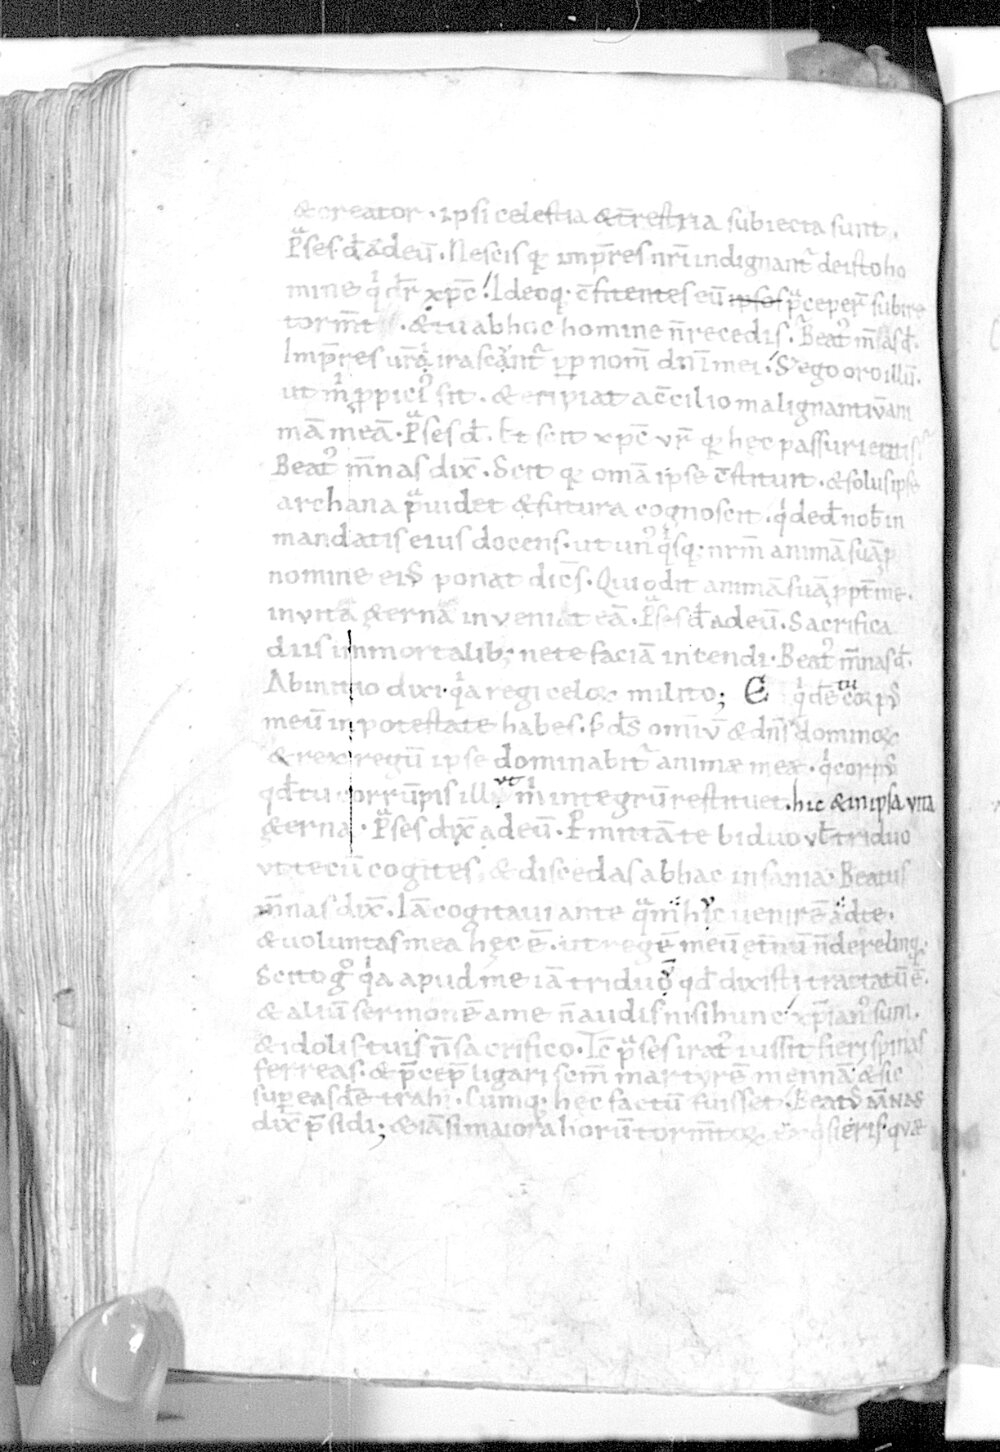 &creator · ipsi celestia & tr̄estria subiecta sunt.
P̄ses d̄ ad eū · Nescis q; imp̄res nr̄i indignant̉ de isto ho
mine qͥ dr̄ xp̄c ! Ideoq; c̄fitentes eū ipsos p̄ceper̄ subire
torm̄t · & tu ab hoc homine n̄ recedis. Beat̉ m̄nas d̄.
Imp̄res ur̄i irascant̉ ꝓp nom̄ dn̄i mei · S; ego oro illū.
ut m̄ ꝓpicỉ sit · & eripiat a c̄cilio malignantiū ani
mā meā · P̄ses d̄. Et scit xp̄c vr̄ q; hec passuri
Beat̉ m̄nas dix̄ · Scit q; om̄a ipse c̄stituit · & solus ipse
archana p̄uidet & futura cognoscit · qͥ ded̄ nob̄ in
mandatis eius docens · ut un̉ qͥsq; nr̄m animā suā ꝓ
nomine eỉ ponat dic̄s · Qui odit animā suā ꝓpt̄ me.
in vitā &ernā inveniat eā · P̄ses d̄ ad eū · Sacrifica
diis immortalib; ne te faciā intendi · Beat̉ m̄nas d̄.
Ab initio dixi · qͥa regi celoꝝ milito; E qͥ d̄e tu corp̉
meū in potestate habes · s; d̄s om̄iū & dn̄s dominoꝝ
& rex regū ipse dominabit̉ animæ meæ · qͥ corp̉
qd̄ tu corrūpis ill ut m̄ integrū restituet · hic & in ipsa vita
&erna · P̄ses dix̄ ad eū · P̄mittā te biduo ul̄ triduo
vt tecū cogites, & discedas ab hac insania · Beatus
m̄nas dix̄ · Iā cogitaui ante qͣm hvc venirē ad te ·
& uoluntas mea hęc ē · ut regē meū et̄nū n̄ derelinq̄.
Scito gͦ qͥa apud me iā triduo qd̄ dixisti tractatū ē.
& aliū sermonē a me n̄ audis nisi hunc · xp̄ian̉ sum.
& idolis tuis n̄ sacrifico · Tc̄ p̄ses irat̉ iussit fieri spinas
ferreas · & p̄cep̄ ligari scm̄ martyrē mennā · & sic
sup eas d̄e trahi · Cumq; hęc factū fuisset · Beat̉ m̄nas
dix̄ p̄sidi; & iā si maiora horū torm̄toꝝ exqͥsieris · quæ